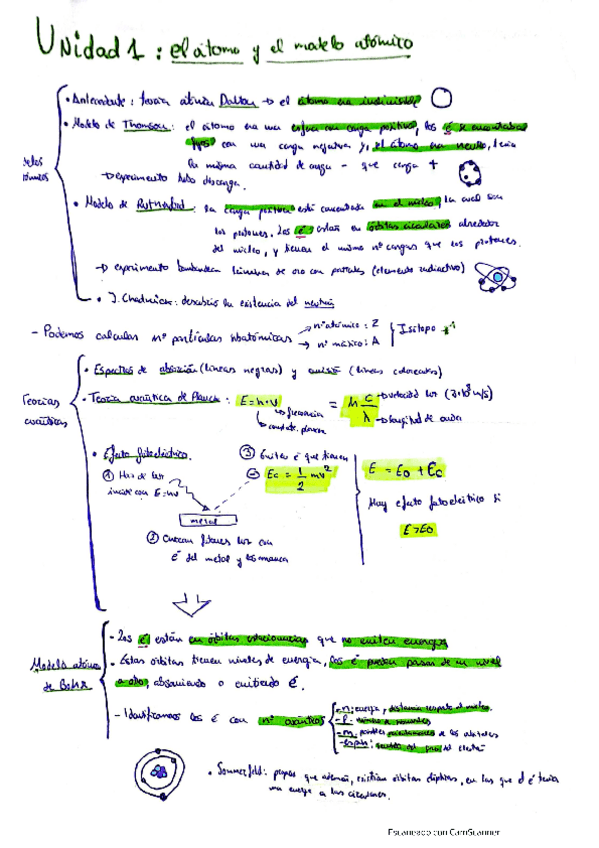 Unidad 1: el átomo y el modelo atómico
• Antecedente: teoría atómica Dalton → el átomo era indivisible
• Modelo de Thomson: el átomo era una esfera con carga positiva, los é se encontraban
fijos con una carga negativa y, el átomo era neutro, tenía
la misma cantidad de carga - que carga +
→ experimento tubo descarga.
• Modelo de Rutherford: la carga positiva está concentrada en el núcleo, la cual son
los protones. Los é están en órbitas circulares alrededor
del núcleo, y tienen el mismo nº cargas que los protones.
→ experimento bombardean láminas de oro con partículas (elemento radiactivo)
• J. Chadwick: descubrió la existencia del neutrón
- Podemos calcular nº partículas subatómicas → nº atómico: Z
→ nº másico: A
Isótopo
Teorías
cuánticas
• Espectros de absorción (líneas negras) y emisión (líneas coloreadas)
• Teoría cuántica de Planck: E = h·ν = h c/λ → velocidad luz (3·10⁸ m/s)
↳ frecuencia
→ longitud de onda
↳ constante planck
• Efecto fotoeléctrico.
① Haz de luz
incide con E=hν
metal
② Chocan fotones luz con
é del metal y los arranca
③ Emiten é que tienen
Ec = 1/2 mv²
E = E₀ + Ec
Hay efecto fotoeléctrico si
E>E₀
Modelo atómico
de Bohr
- Los é están en órbitas estacionarias que no emiten energía
• Estas órbitas tienen niveles de energía, los é pueden pasar de un nivel
a otro, absorbiendo o emitiendo é.
- Identificamos los é con nº cuánticos
- n: energía, distancia respecto al núcleo.
- l:
- m: posibles orientaciones de los orbitales
- espín: sentido del giro del electrón
• Sommerfeld: propuso que además, existían órbitas elípticas, en las que el é tenía
una energía a las circulares.
Escaneado con CamScanner